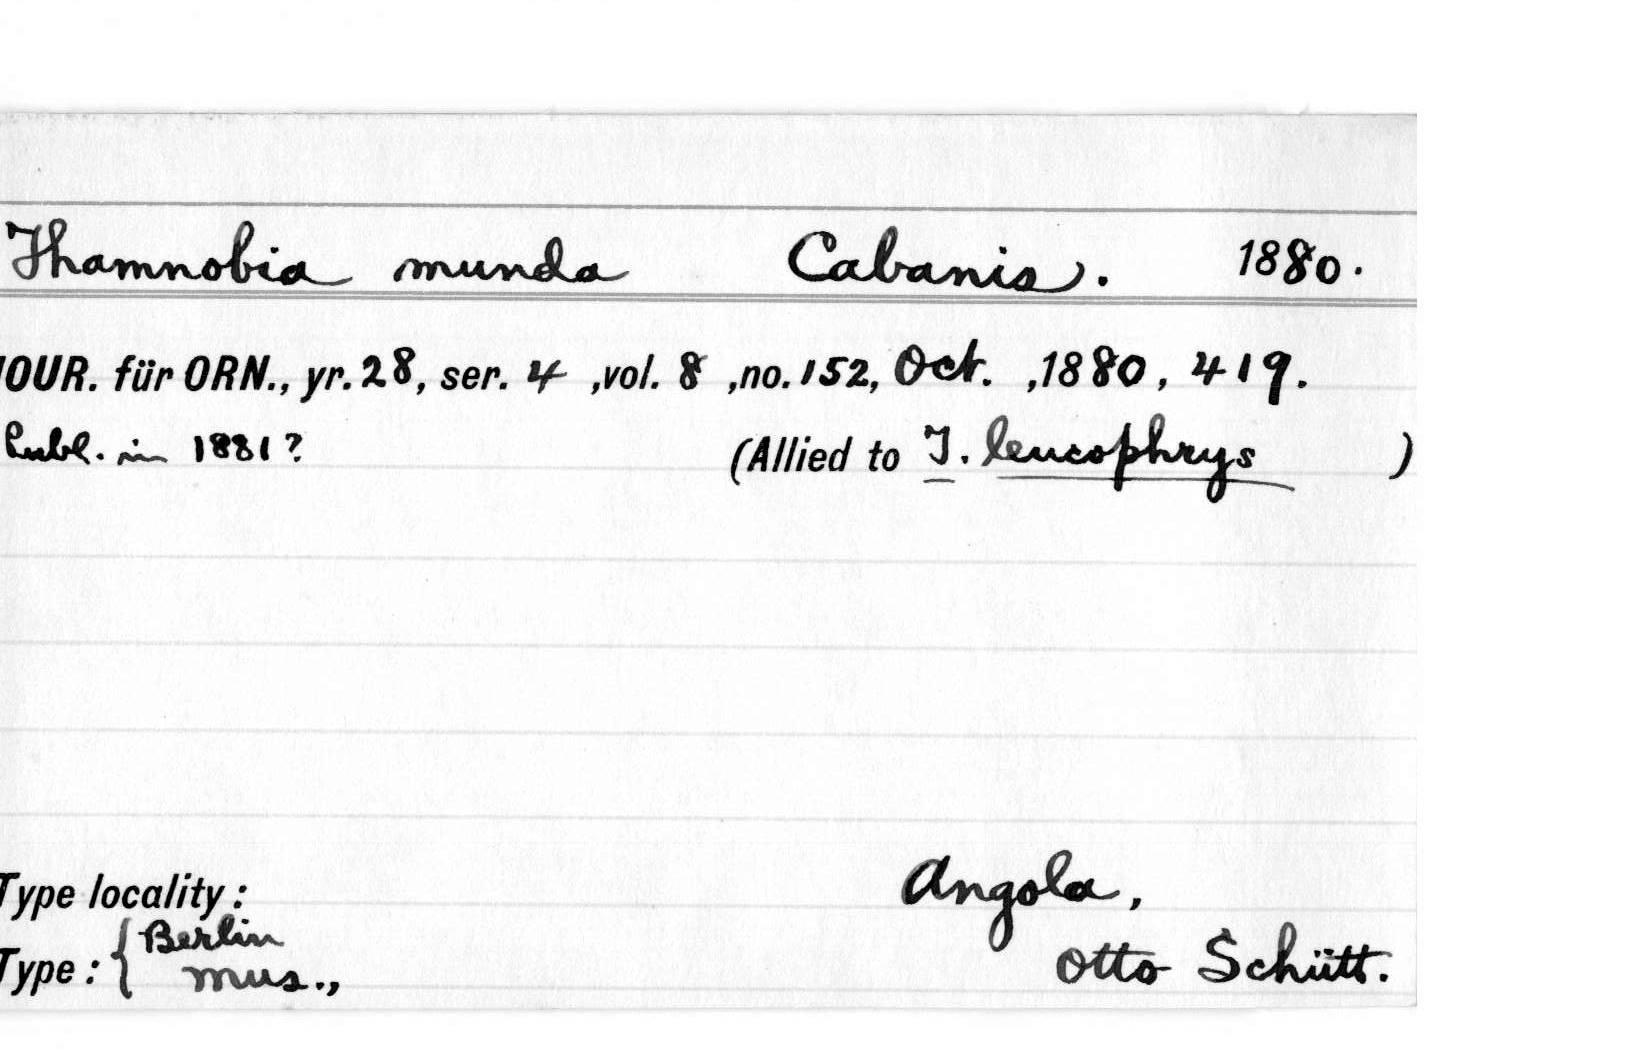 Thamnobia munda Cabanis. 1880.
JOUR. für ORN., yr. 28, ser. 4 ,vol. 8 ,no. 152, Oct. ,1880, 419.
Publ. in 1881? (Allied to T. leucophrys )
Type locality : Angola,
Type : { Berlin
mus., Otto Schütt.